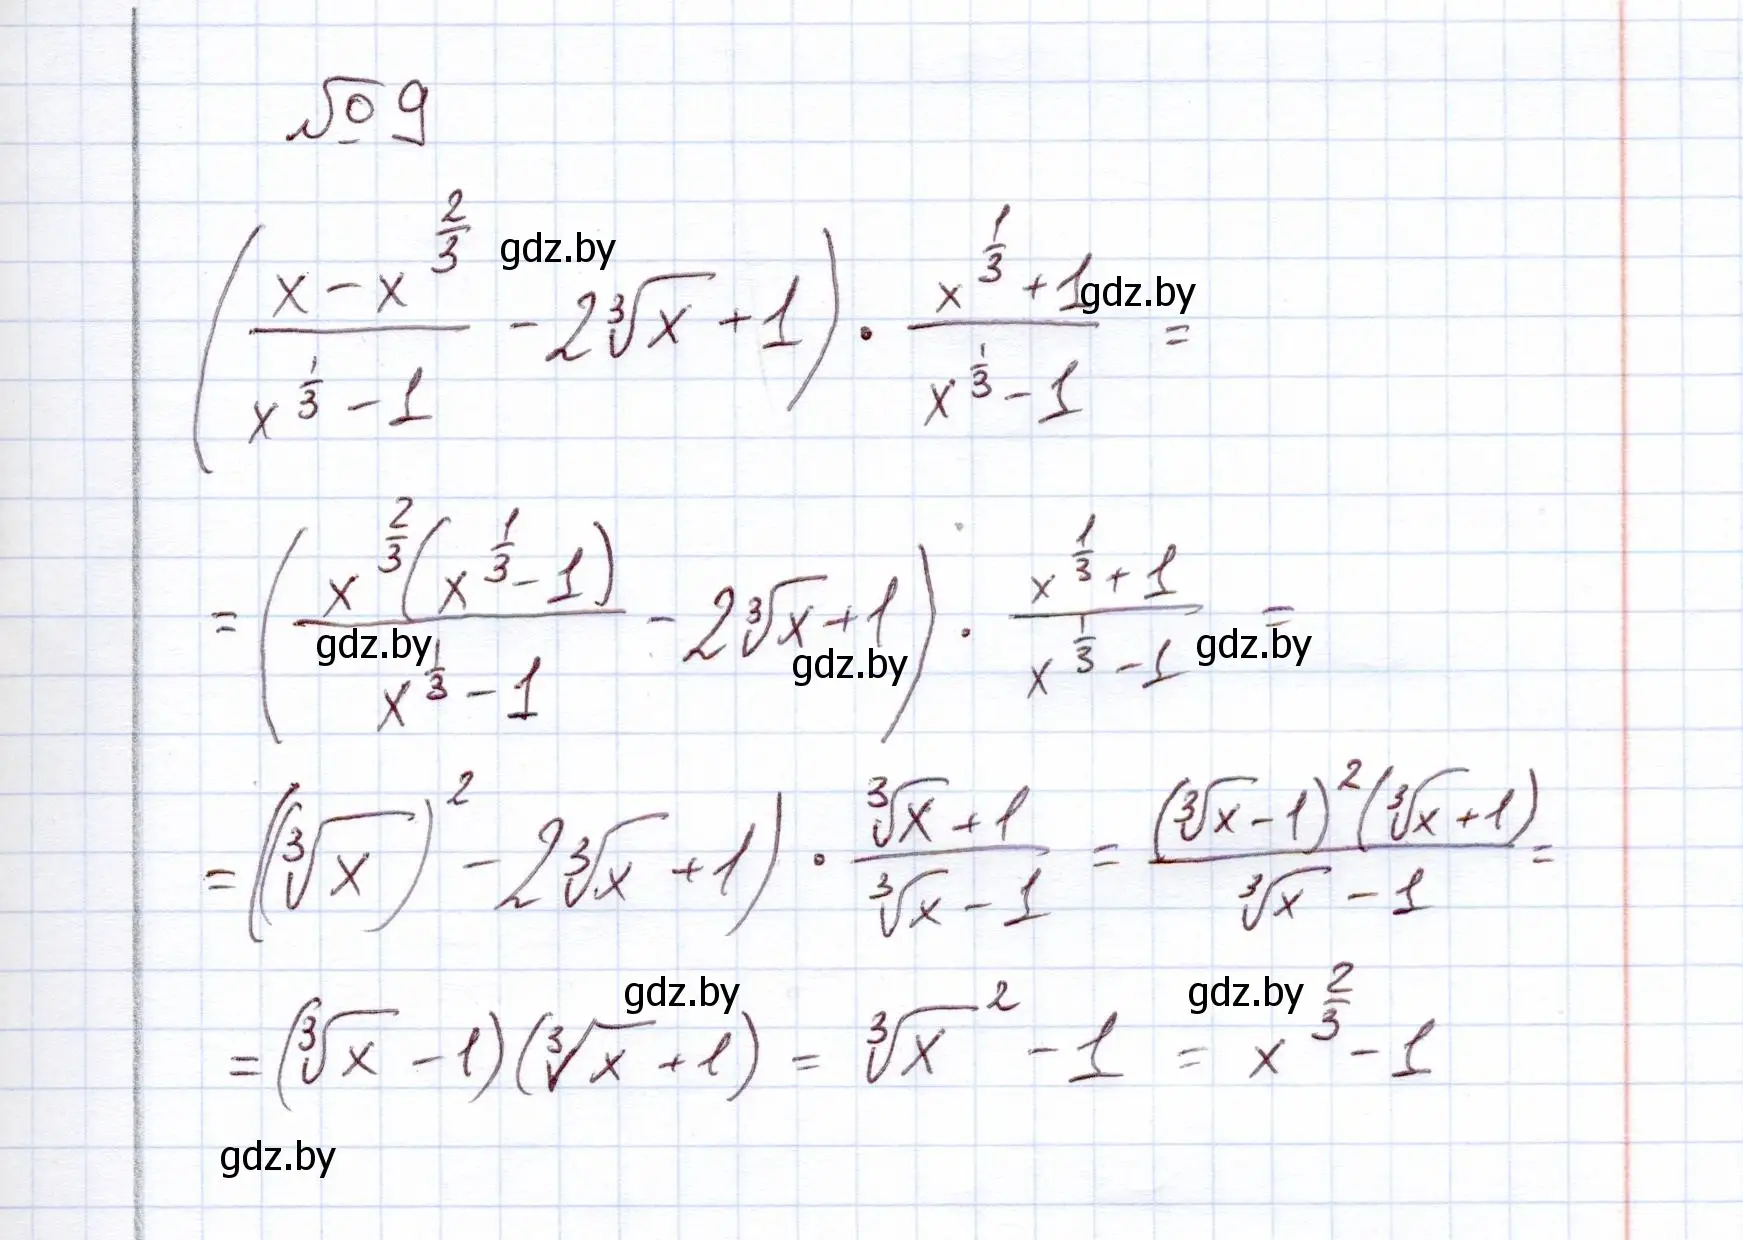 № 9
gdz.by
( (x - x^(2/3)) / (x^(1/3) - 1) - 2∛x + 1 ) · (x^(1/3) + 1) / (x^(1/3) - 1) =
gdz.by
= ( x^(2/3)(x^(1/3) - 1) / (x^(1/3) - 1) - 2∛x + 1 ) · (x^(1/3) + 1) / (x^(1/3) - 1) =
gdz.by gdz.by gdz.by
= ((∛x)² - 2∛x + 1) · (∛x + 1) / (∛x - 1) = (∛x - 1)²(∛x + 1) / (∛x - 1) =
gdz.by gdz.by
= (∛x - 1)(∛x + 1) = ∛x² - 1 = x^(2/3) - 1
gdz.by